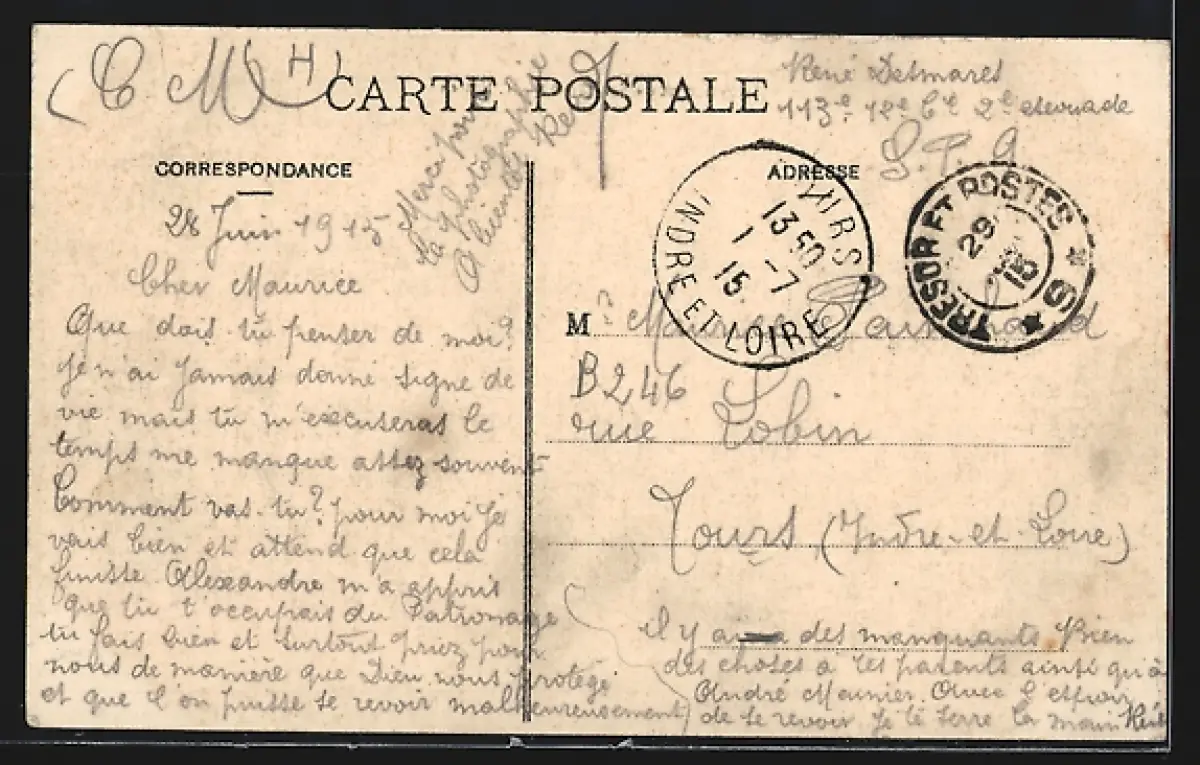 (C M H)
CARTE POSTALE
René Desmares
113e 12e Cie 2e escouade
S. P. 9
CORRESPONDANCE
ADRESSE
Merci pour
la photographie
A bientôt René
TOURS
INDRE ET LOIRE
13 50
1 -7
15
TRESOR ET POSTES * 9 *
29
15
28 Juin 1915
Cher Maurice
Que dois tu penser de moi?
je n'ai jamais donné signe de
vie mais tu m'excuseras le
temps me manque assez souvent
Comment vas-tu? pour moi je
vais bien et attend que cela
finisse Alexandre m'a appris
que tu t'occupais du Patronage
tu fais bien et surtout priez pour
nous de manière que Dieu nous protège
et que l'on puisse se revoir malheureusement
il y a des manquants. Bien
des choses à tes parents ainsi qu'à
André Meunier. Avec l'espoir
de se revoir je te serre la main René
Mr Maurice
B246
rue Lobin
Tours (Indre-et-Loire)